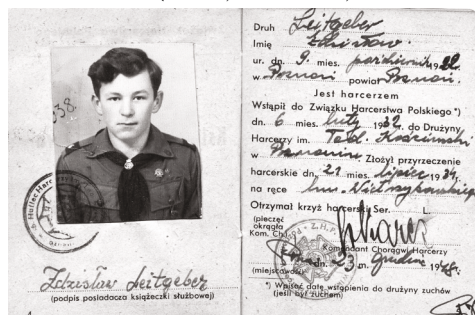 1938.
Zdzisław Leitgeber
(podpis posiadacza książeczki służbowej)
Druh Leitgeber
Imię Zdzisław
ur. dn. 9. mies. październik 1922
w Poznań powiat Poznań.
Jest harcerzem
Wstąpił do Związku Harcerstwa Polskiego *)
dn. 6 mies. luty 1932 do Drużyny
Harcerzy im. Tad. Kościuszki
w Poznaniu Złożył przyrzeczenie
harcerskie dn. 29 mies. lipiec 1934.
na ręce hm.
Otrzymał krzyż harcerski Ser.
(pieczęć
okrągła
Kom. Chor.)
Komendant Chorągwi Harcerzy
dn. 23 m. grudnia 1938.
(miejscowość)
*) Wpisać datę wstąpienia do drużyny zuchów
(jeśli był zuchem)